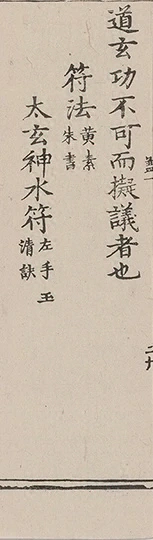 道玄功不可而擬議者也
符法黃素朱書
太玄神水符左手玉清訣